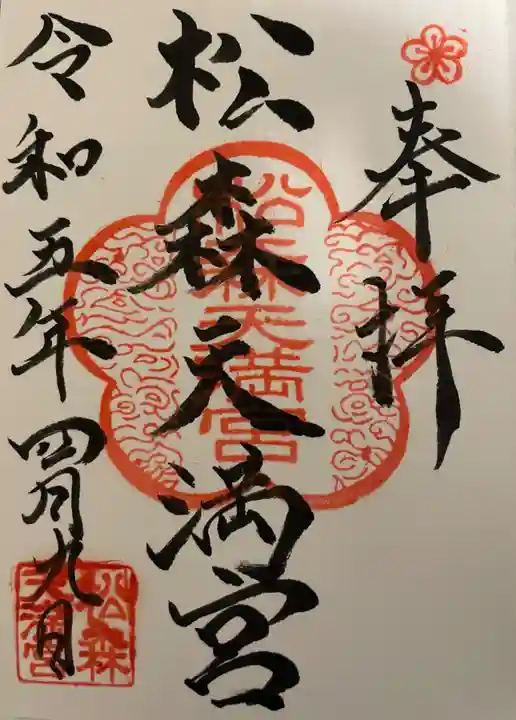 奉拝
松森天満宮
松森天満宮
令和五年四月九日
松森天満宮